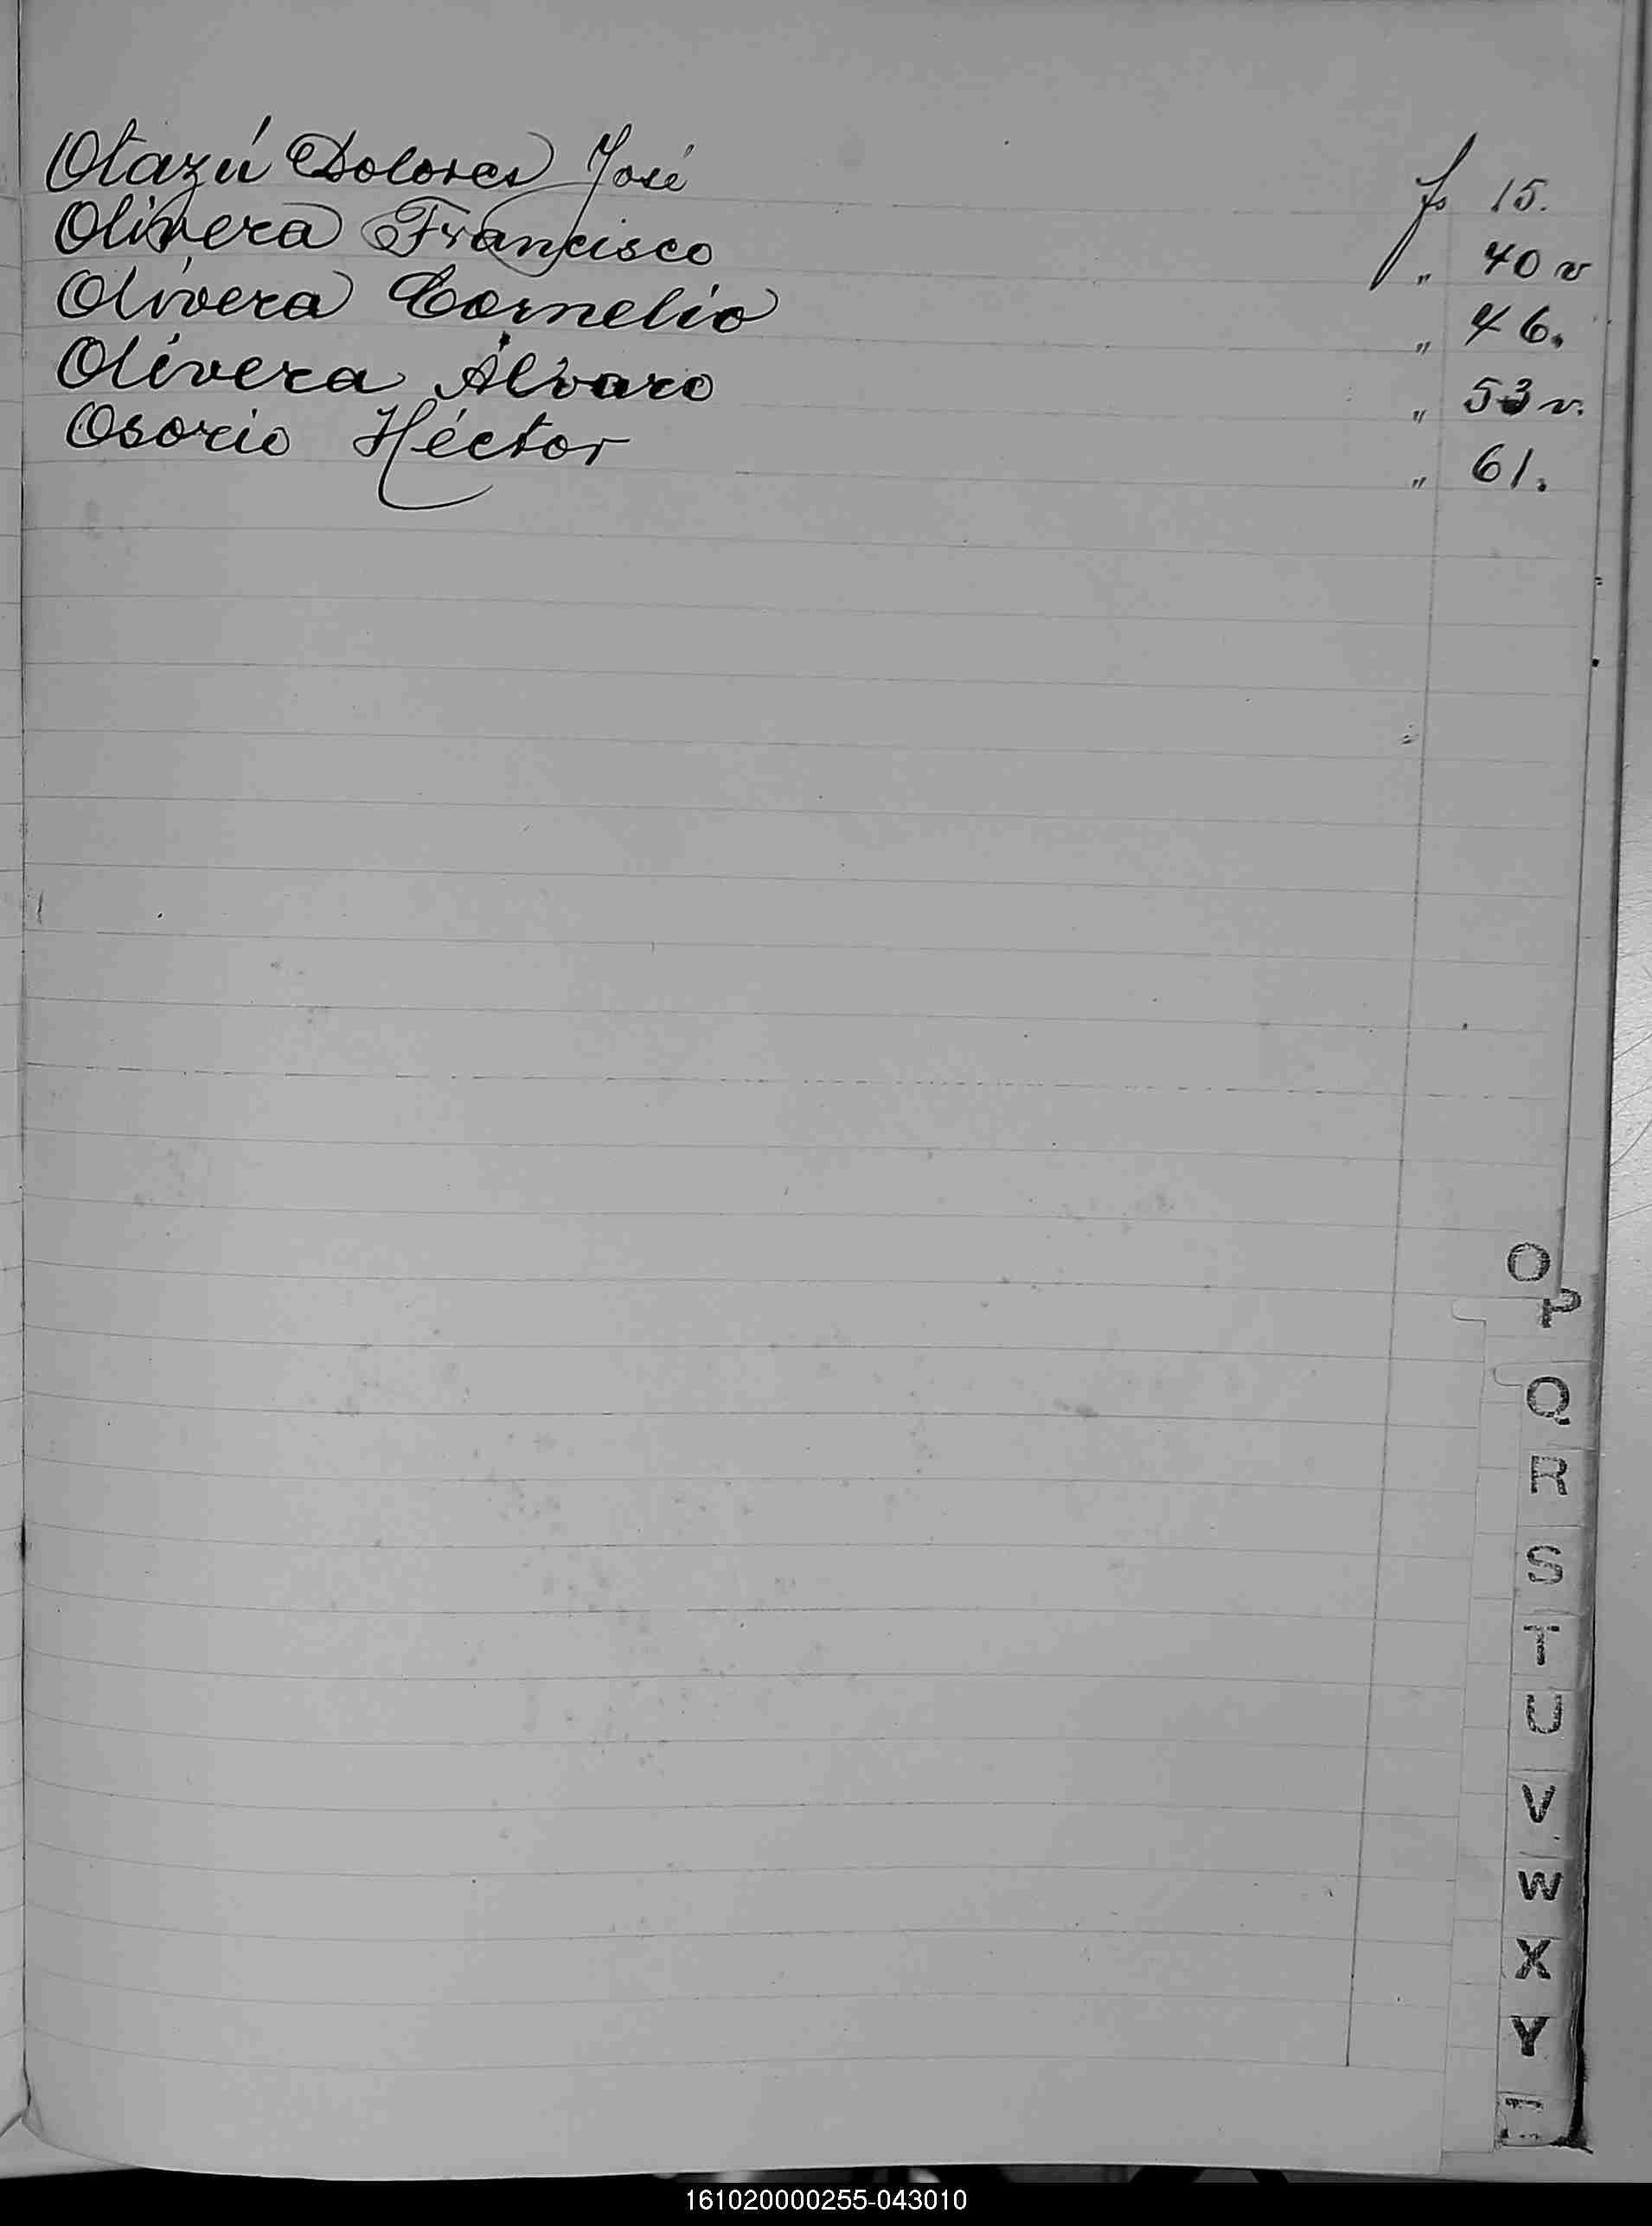 Otazú Dolores José fs 15.
Olivera Francisco " 40 v
Olivera Cornelio " 46.
Olivera Álvaro " 53 v.
Osorio Héctor " 61.
O
P
Q
R
S
T
U
V
W
X
Y
161020000255-043010